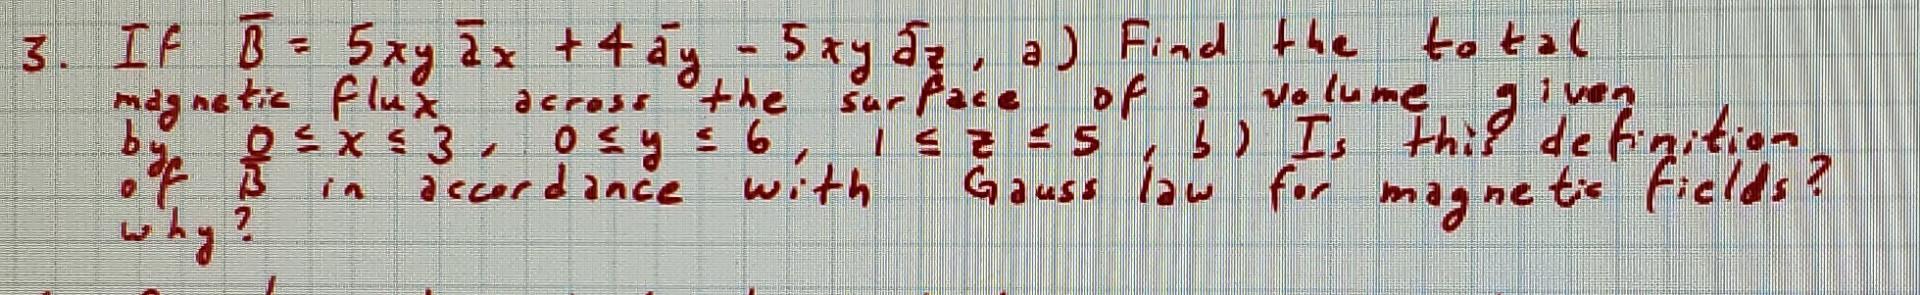 3. If B̄ = 5xy āx + 4 āy - 5xy āz, a) Find the total
magnetic flux across the surface of a volume given
by 0 ≤ x ≤ 3, 0 ≤ y ≤ 6, 1 ≤ z ≤ 5, b) Is this definition
of B̄ in accordance with Gauss law for magnetic fields?
why?